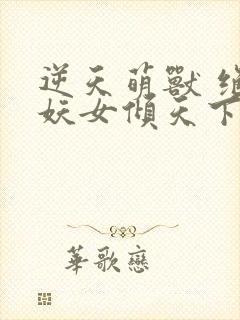 逆天萌獸
妖女傾天下
華歌戀